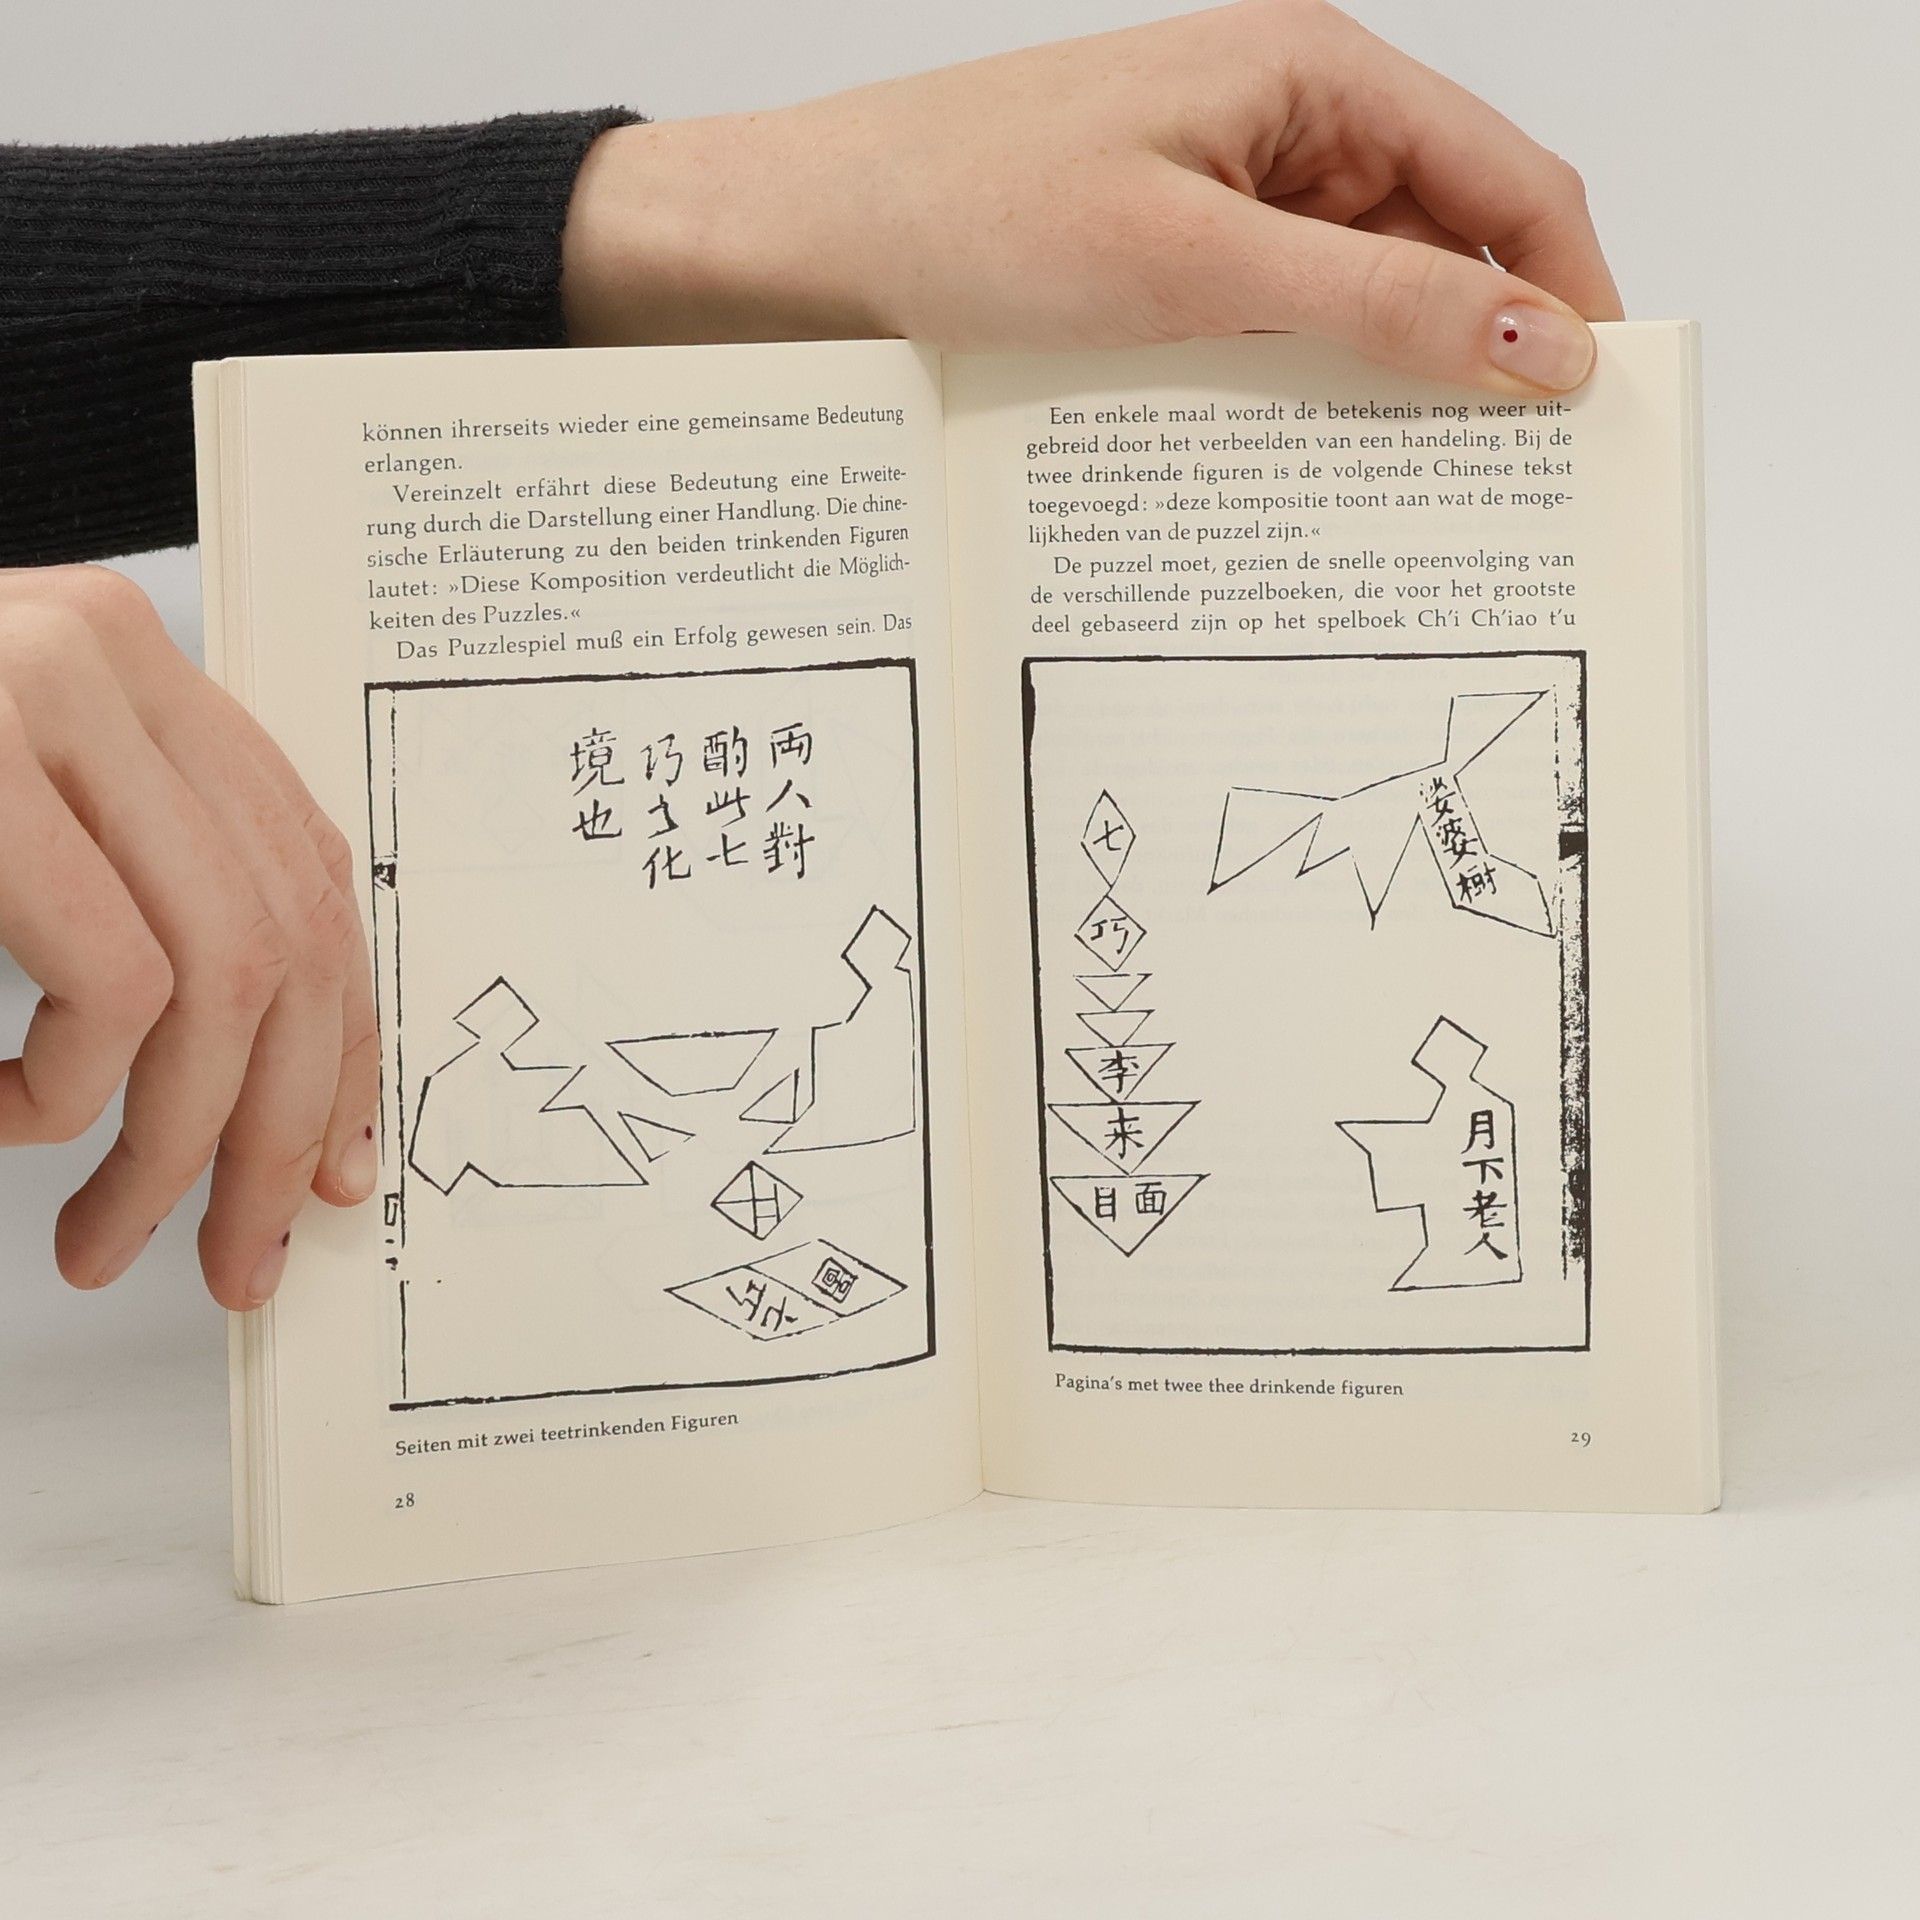 können ihrerseits wieder eine gemeinsame Bedeutung
erlangen.
Vereinzelt erfährt diese Bedeutung eine Erweite-
rung durch die Darstellung einer Handlung. Die chine-
sische Erläuterung zu den beiden trinkenden Figuren
lautet: »Diese Komposition verdeutlicht die Möglich-
keiten des Puzzles.«
Das Puzzlespiel muß ein Erfolg gewesen sein. Das
両人對
酌此七
巧之化
境也
圖
七巧
Seiten mit zwei teetrinkenden Figuren
28
Een enkele maal wordt de betekenis nog weer uit-
gebreid door het verbeelden van een handeling. Bij de
twee drinkende figuren is de volgende Chinese tekst
toegevoegd: »deze kompositie toont aan wat de moge-
lijkheden van de puzzel zijn.«
De puzzel moet, gezien de snelle opeenvolging van
de verschillende puzzelboeken, die voor het grootste
deel gebaseerd zijn op het spelboek Ch'i Ch'iao t'u
婆樹
月下老人
七
巧
李
来
面目
Pagina's met twee thee drinkende figuren
29